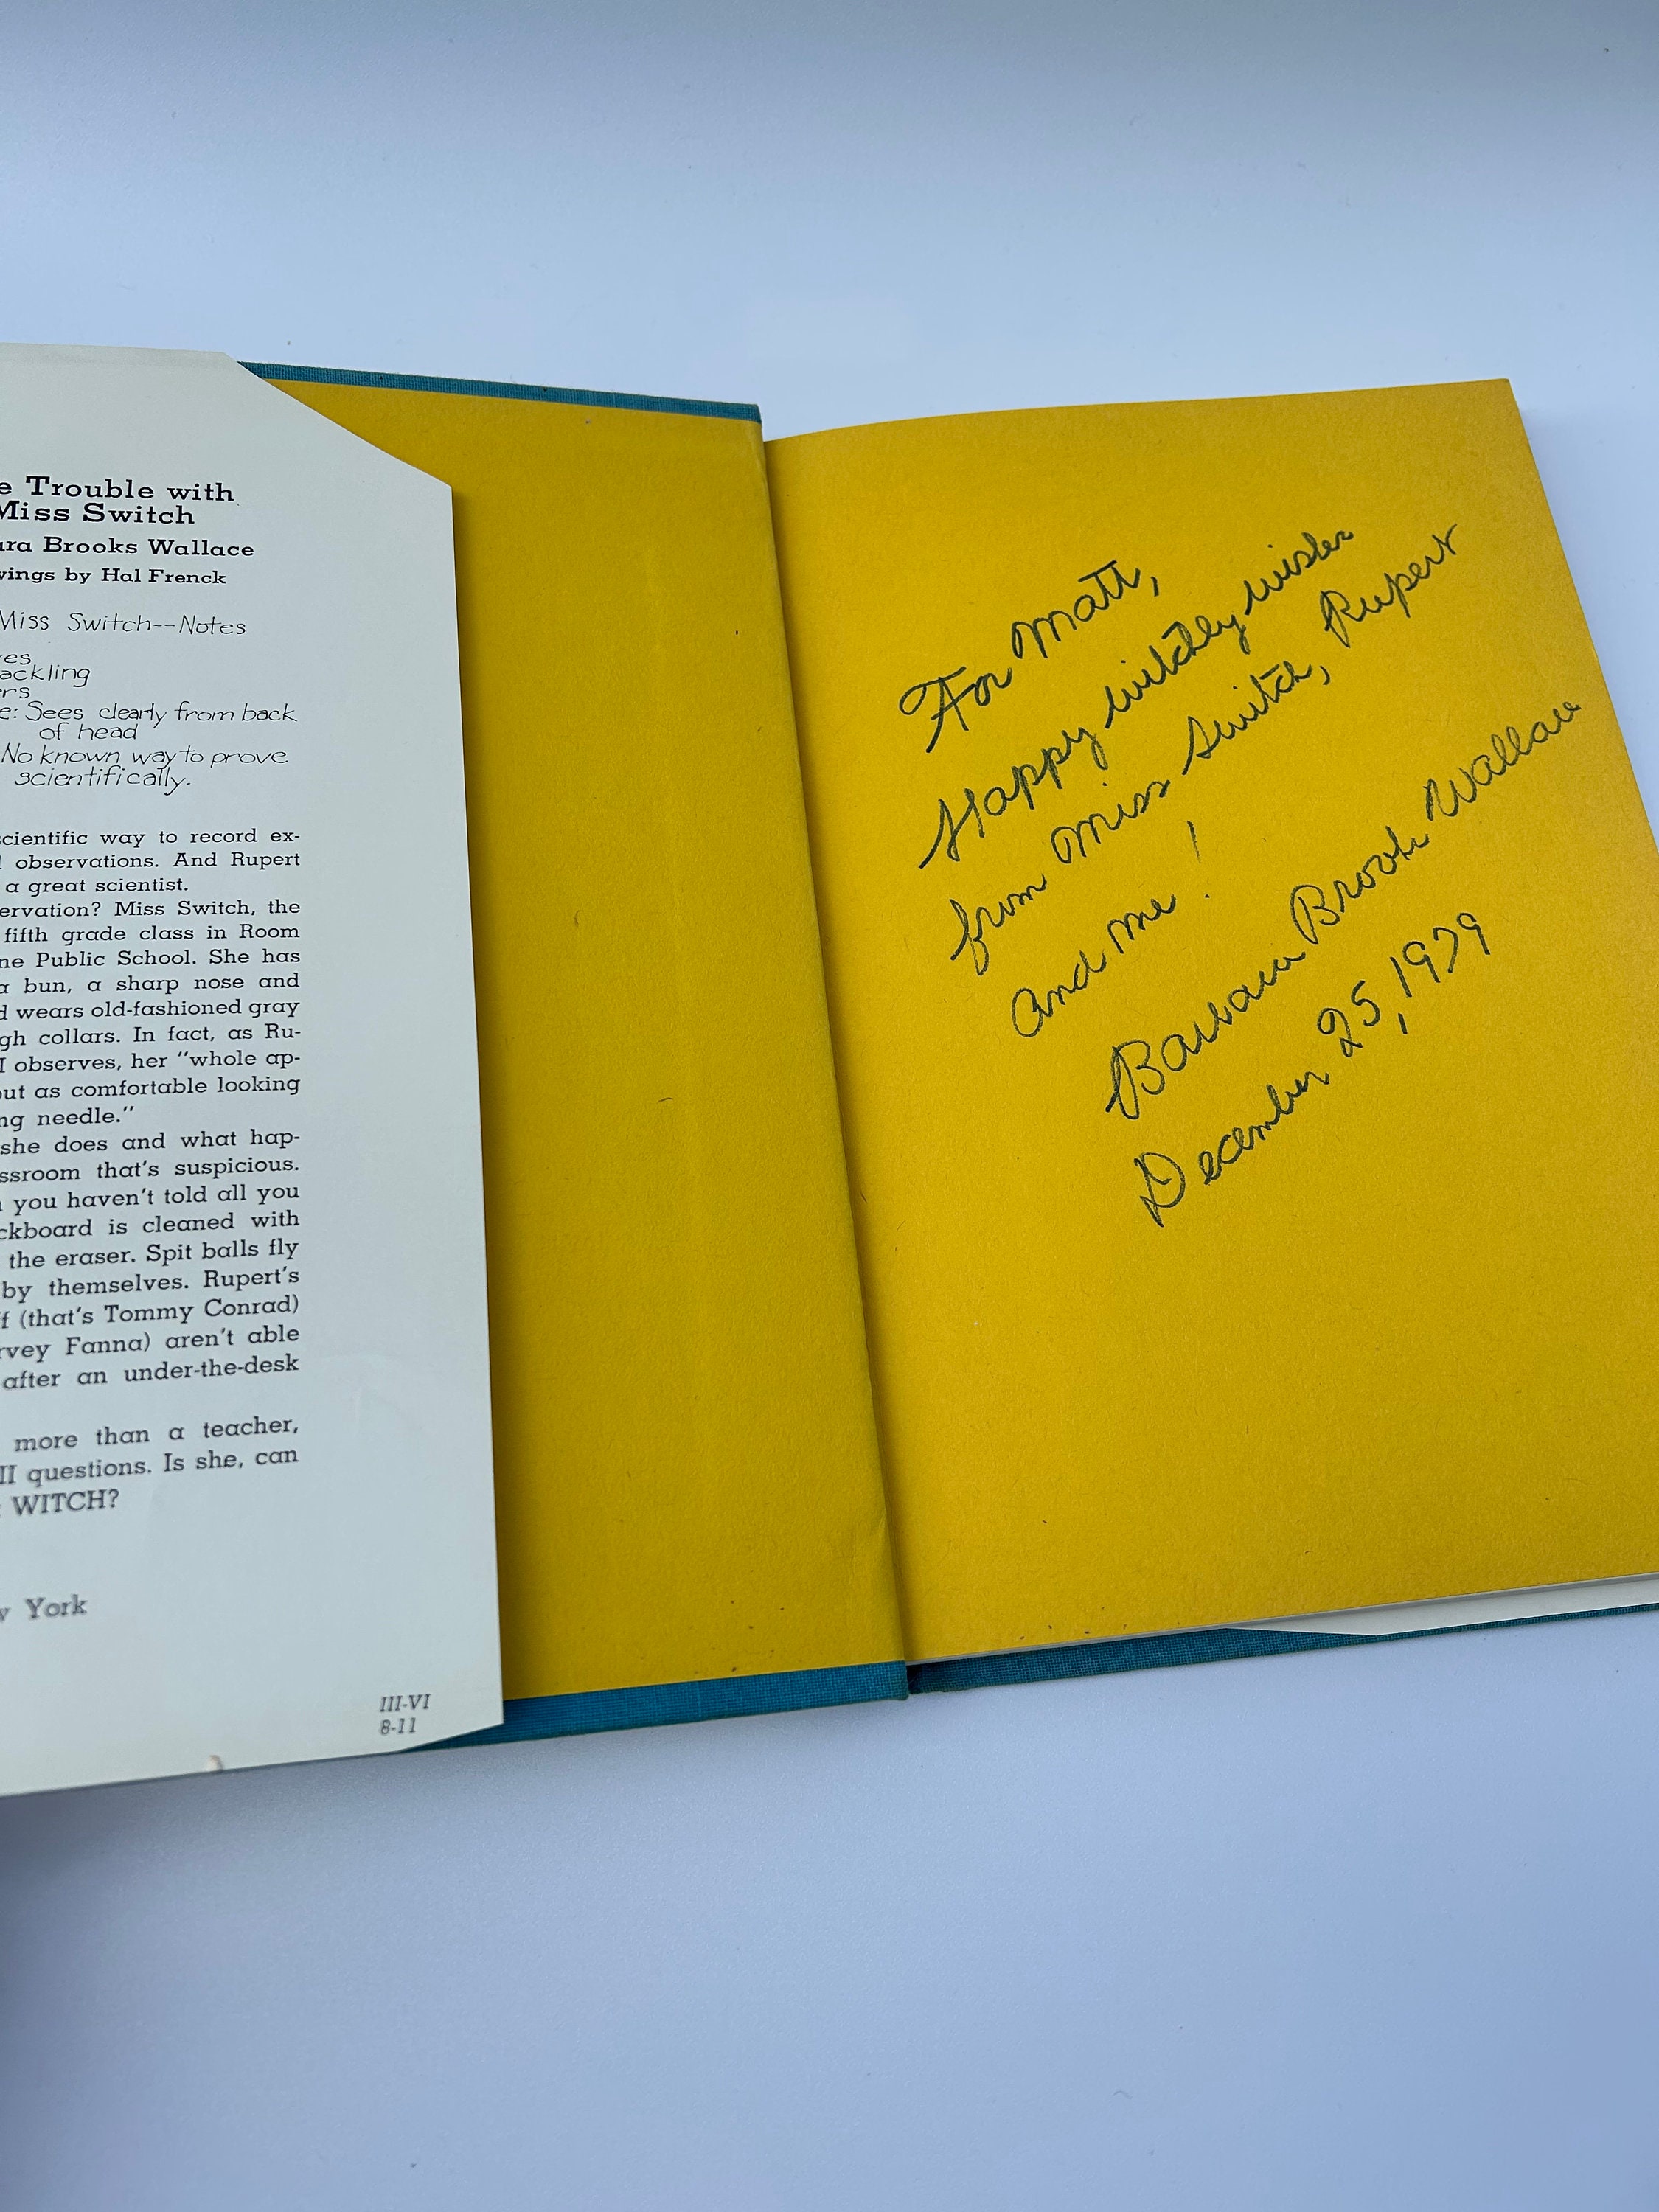 e Trouble with
Miss Switch
ara Brooks Wallace
wings by Hal Frenck
Miss Switch--Notes
es
ackling
rs
e: Sees clearly from back
of head
No known way to prove
scientifically.
scientific way to record ex-
observations. And Rupert
a great scientist.
ervation? Miss Switch, the
fifth grade class in Room
ne Public School. She has
a bun, a sharp nose and
d wears old-fashioned gray
gh collars. In fact, as Ru-
I observes, her "whole ap-
out as comfortable looking
ng needle."
she does and what hap-
ssroom that's suspicious.
you haven't told all you
ckboard is cleaned with
the eraser. Spit balls fly
by themselves. Rupert's
f (that's Tommy Conrad)
rvey Fanna) aren't able
after an under-the-desk
more than a teacher,
II questions. Is she, can
WITCH?
w York
III-VI
8-11
For Matt,
Happy witchly wishes
from Miss Switch, Rupert
and me!
Barbara Brooks Wallace
December 25, 1979